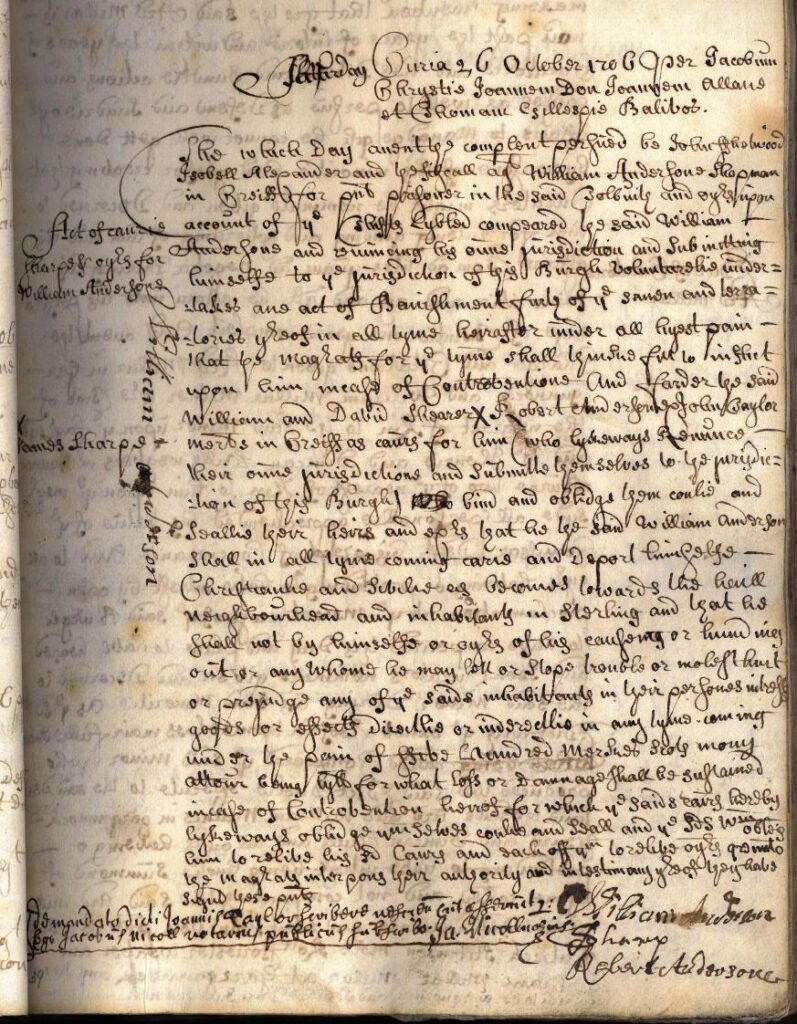 Satterday Curia 26 October 1706 per Jacobum
Chrystie Joannem Don Joannem Allane
et Thomam Gillespie Balivos.
The which Day anent the complent persued be John
Issobell Alexander and the fiscall agt William Andersone Chapman
in for pnt prisoner in the said Tolbuith and oyrs upon
account of ye Lybled compeared the said William
Andersone and renuncing his oune jurisdiction and submitting
himselfe to ye jurisdiction of this Burgh voluntarelie under-
-takes ane act of Banishment furth of ye samen and terra-
-tories yrof in all tyme heirafter under all hyest pain
that ye Magrats for ye tyme shall think fit to inflict
upon him incase of Controventione And farder the said
William and David Shearer X Robert Andersone John Taylor
merts in as caurs for him (who lykeways Renunce
their oune jurisdictione and submitte themselves to the jurisdic-
-tion of this Burgh) bind and oblidge them conlie and
seallie their heirs and exrs that he the said William Anderson
shall in all tyme coming carie and Deport himselfe
Christianlie and Civilie as becomes towards the heall
neighbourhead and inhabitants in Sterling and that he
shall not by himselfe or oyrs of his causeing or hund ing
out or any whome he may lett or stope trouble or molest hurt
or prejudge any of ye saids inhabitants in their persones
goods or effects Directlie or inderectlie in any tyme coming
under the pain of ffive Hundred Merkes Scots mony
attour being lyble for what loss or Damnage shall be sustained
incase of Controvention heirof for which ye saids caurs hereby
lykeways oblidge ymselves conlie and seall and ye sds Wm oblidges
him to relive his sd Caurs and each off ym to relive oyrs
the magrats interpons their authority and in testimony yrof they have
signd these pnts
Act of caurie
Sharpe & oyrs for
William Andersone
William Anderson
James Sharpe
De mandato dicti Joannis Taylor scribere nescien ut asseruit
Ego Jacobus Nicoll notarius publicus subscribo Ja: Nicoll
William Anderson
Sharp
Robert Andersone